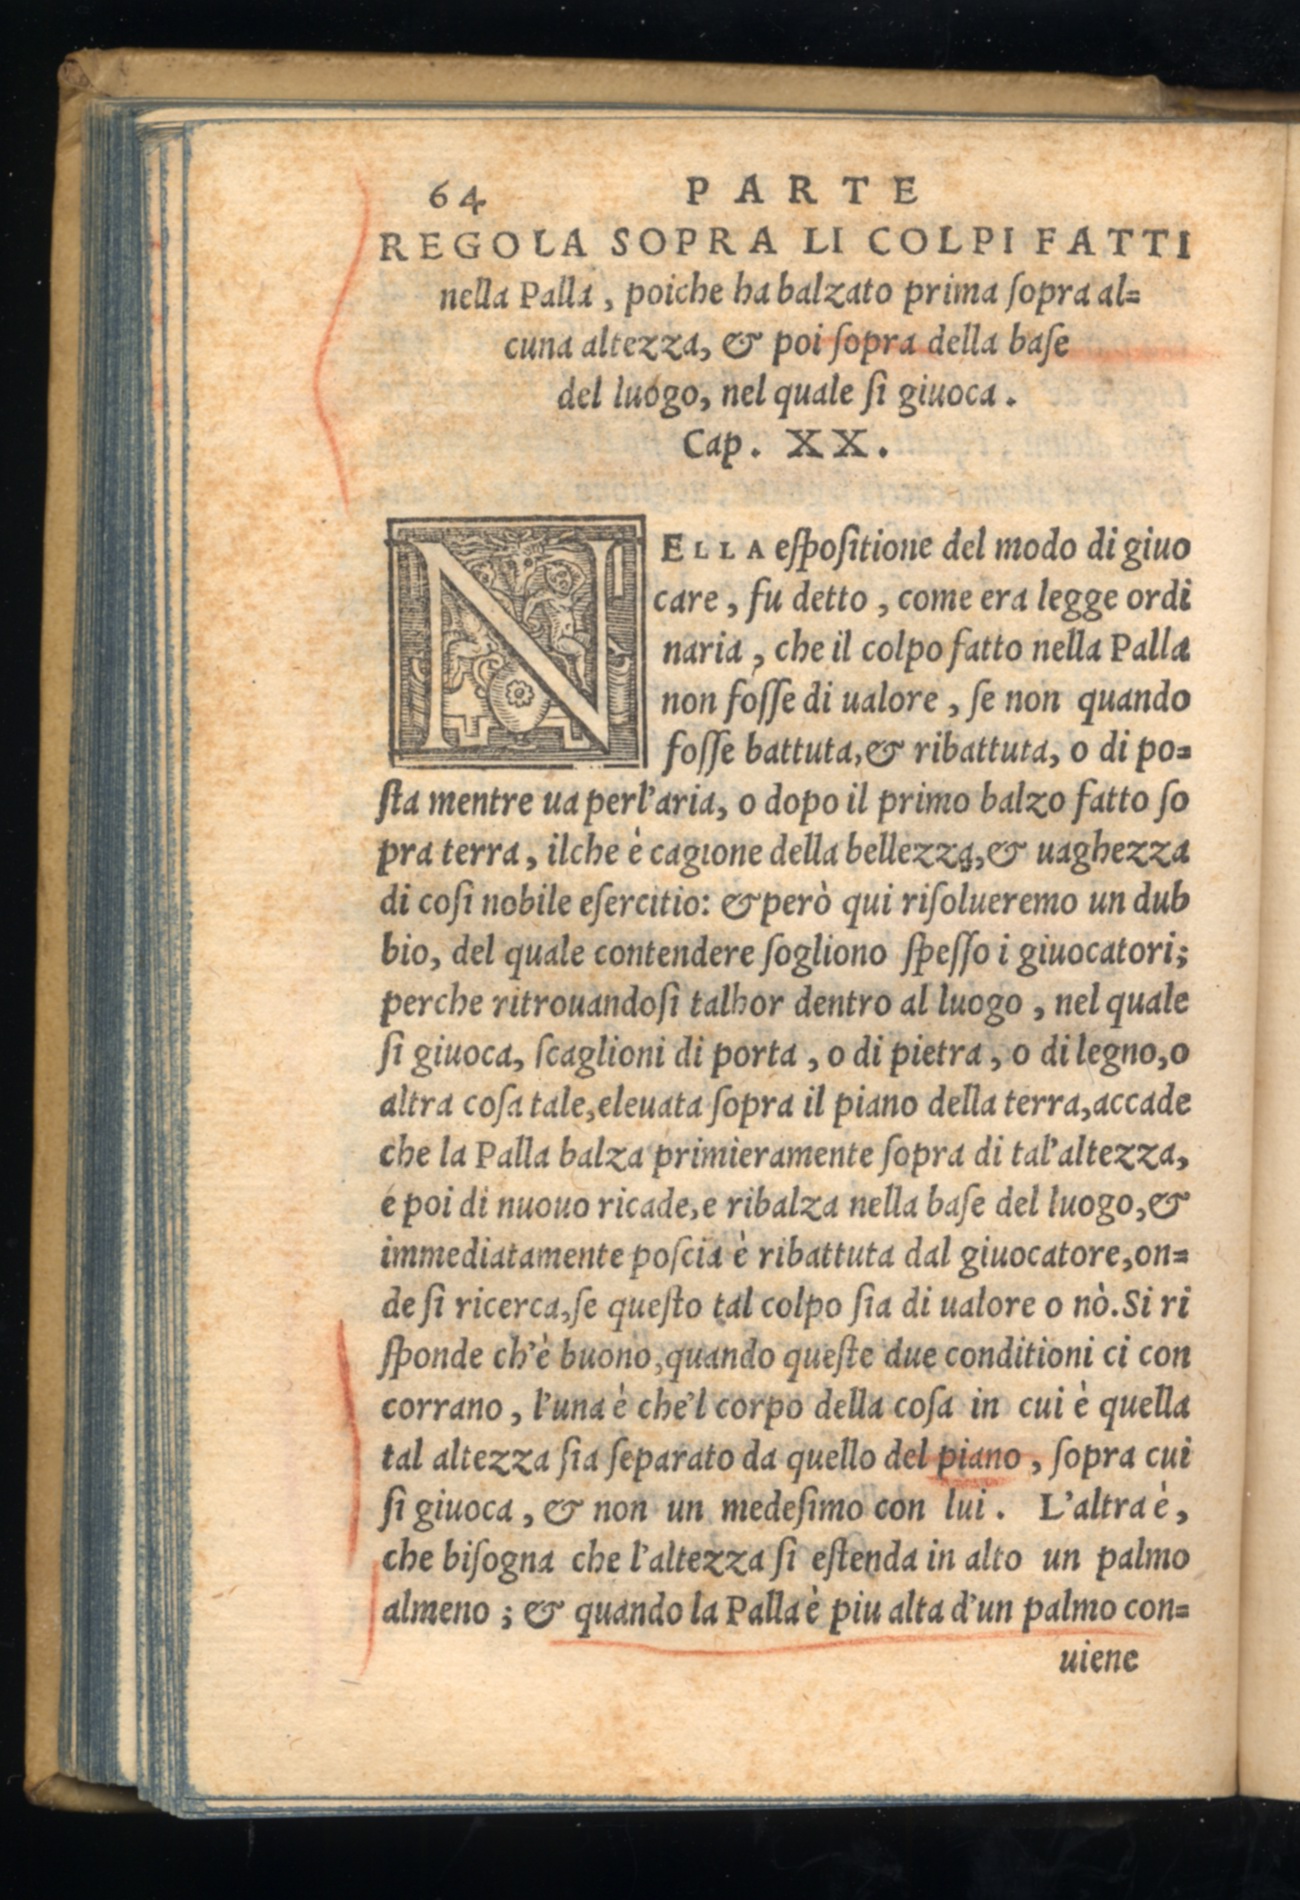 64 PARTE
REGOLA SOPRA LI COLPI FATTI
nella Palla, poiche ha balzato prima ſopra al=
cuna altezza, & poi ſopra della baſe
del luogo, nel quale ſi giuoca.
Cap. XX.
NELLA eſpoſitione del modo di giuo
care, fu detto, come era legge ordi
naria, che il colpo fatto nella Palla
non foſſe di ualore, ſe non quando
foſſe battuta, & ribattuta, o di po=
ſta mentre ua perl'aria, o dopo il primo balzo fatto ſo
pra terra, ilche è cagione della bellezza, & uaghezza
di coſi nobile eſercitio: & però qui riſolueremo un dub
bio, del quale contendere ſogliono ſpeſſo i giuocatori;
perche ritrouandoſi talhor dentro al luogo, nel quale
ſi giuoca, ſcaglioni di porta, o di pietra, o di legno, o
altra coſa tale, eleuata ſopra il piano della terra, accade
che la Palla balza primieramente ſopra di tal'altezza,
e poi di nuouo ricade, e ribalza nella baſe del luogo, &
immediatamente poſcia è ribattuta dal giuocatore, on=
de ſi ricerca, ſe queſto tal colpo ſia di ualore o nò. Si ri
ſponde ch'è buono, quando queſte due conditioni ci con
corrano, l'una è che'l corpo della coſa in cui è quella
tal altezza ſia ſeparato da quello del piano, ſopra cui
ſi giuoca, & non un medeſimo con lui. L'altra è,
che biſogna che l'altezza ſi eſtenda in alto un palmo
almeno; & quando la Palla è piu alta d'un palmo con=
uiene